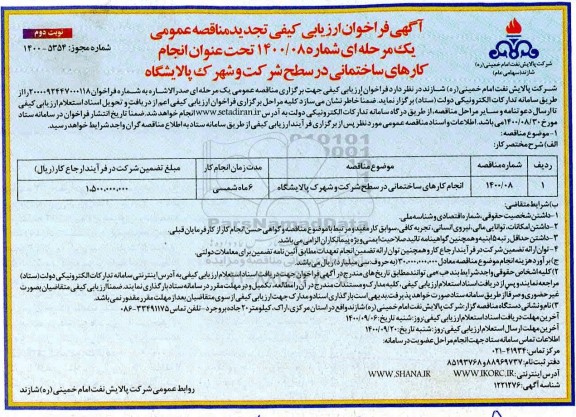 نوبت دوم
شماره مجوز: ۵۳۵۴-۱۴۰۰
آگهی فراخوان ارزیابی کیفی تجدید مناقصه عمومی
یک مرحله ای شماره ۱۴۰۰/۰۸ تحت عنوان انجام
کارهای ساختمانی در سطح شرکت و شهرک پالایشگاه
شرکت پالایش نفت امام خمینی (ره)
شازند (سهامی عام)
شرکت پالایش نفت امام خمینی (ره) شازند در نظر دارد فراخوان ارزیابی کیفی جهت برگزاری مناقصه عمومی یک مرحله ای صدرالاشاره به شماره فراخوان ۲۰۰۰۰۹۲۴۴۷۰۰۰۱۱۸ را از
طریق سامانه تدارکات الکترونیکی دولت (ستاد) برگزار نماید. ضمنا خاطر نشان می سازد کلیه مراحل برگزاری فراخوان ارزیابی کیفی اعم از دریافت و تحویل اسناد استعلام ارزیابی کیفی
تا ارسال دعوتنامه و سایر مراحل مناقصه، از طریق درگاه سامانه تدارکات الکترونیکی دولت به آدرس www.setadiran.ir انجام خواهد شد. ضمناً تاریخ انتشار فراخوان در سامانه ستاد
مورخ ۱۴۰۰/۰۸/۳۰ می باشد. اطلاعات و اسناد مناقصه عمومی مورد نظر پس از برگزاری فرآیند ارزیابی کیفی از طریق سامانه ستاد به اطلاع مناقصه گران واجد شرایط خواهد رسید.
۱- موضوع مناقصه:
الف) شرح مختصر کار:
ردیف شماره مناقصه موضوع مناقصه مدت زمان انجام کار مبلغ تضمین شرکت در فرآیند ارجاع کار (ریال)
۱ ۱۴۰۰/۰۸ انجام کارهای ساختمانی در سطح شرکت و شهرک پالایشگاه ۶ ماه شمسی ۱،۵۰۰،۰۰۰،۰۰۰
ب) شرایط متقاضی:
۱- داشتن شخصیت حقوقی، شماره اقتصادی و شناسه ملی.
۲- داشتن امکانات، توانایی مالی، نیروی انسانی، تجربه کافی، سوابق کار مفید و مرتبط با موضوع مناقصه و گواهی حسن انجام کار از کارفرمایان قبلی.
۳- داشتن حداقل رتبه ۵ ابنیه و همچنین گواهینامه تائید صلاحیت ایمنی ویژه پیمانکاران الزامی می باشد.
۴- توان ارائه تضمین شرکت در فرآیند ارجاع کار و همچنین توان ارائه تضمین انجام تعهدات مطابق آئین نامه تضمین برای معاملات دولتی.
ج) برآورد هزینه انجام موضوع مناقصه معادل ۳۰،۰۰۰،۰۰۰،۰۰۰ (به حروف سی میلیارد) ریال می باشد.
۲) کلیه اشخاص حقوقی واجد شرایط بند «ب» می توانند مطابق تاریخ های مندرج در آگهی فراخوان جهت دریافت اسناد استعلام ارزیابی کیفی به آدرس اینترنتی سامانه تدارکات الکترونیکی دولت (ستاد)
مراجعه نمایند و پس از دریافت اسناد استعلام ارزیابی کیفی، کلیه مدارک و مستندات مندرج در آن را مطالعه، تکمیل و در مهلت مقرر در سامانه ستاد بارگذاری نمایند. ضمنا ارزیابی کیفی متقاضیان بصورت
غیر حضوری و صرفا از طریق سامانه ستاد صورت خواهد پذیرفت. بدیهی است بارگذاری اسناد و مدارک جهت ارزیابی کیفی از سوی متقاضیان بعد از مهلت مقرر مقدور نمی باشد.
۳) نام و نشانی دستگاه مناقصه گزار: شرکت پالایش نفت امام خمینی (ره) شازند واقع در استان مرکزی، اراک، کیلومتر ۲۰ جاده بروجرد - تلفن تماس ۳۳۴۹۱۱۷۵-۰۸۶
آخرین مهلت دریافت اسناد استعلام ارزیابی کیفی: روز: شنبه تاریخ: ۱۴۰۰/۰۹/۰۶
آخرین مهلت ارسال استعلام ارزیابی کیفی: روز: شنبه تاریخ: ۱۴۰۰/۰۹/۲۰
اطلاعات تماس سامانه ستاد جهت انجام مراحل عضویت در سامانه:
مرکز تماس: ۴۱۹۳۴-۰۲۱
دفتر ثبت نام: ۸۸۹۶۹۷۳۷ و ۸۵۱۹۳۷۶۸
آدرس اینترنتی: WWW.IKORC.IR WWW.SHANA.IR
شناسه آگهی: ۱۲۲۱۲۷۶
روابط عمومی شرکت پالایش نفت امام خمینی (ره) شازند